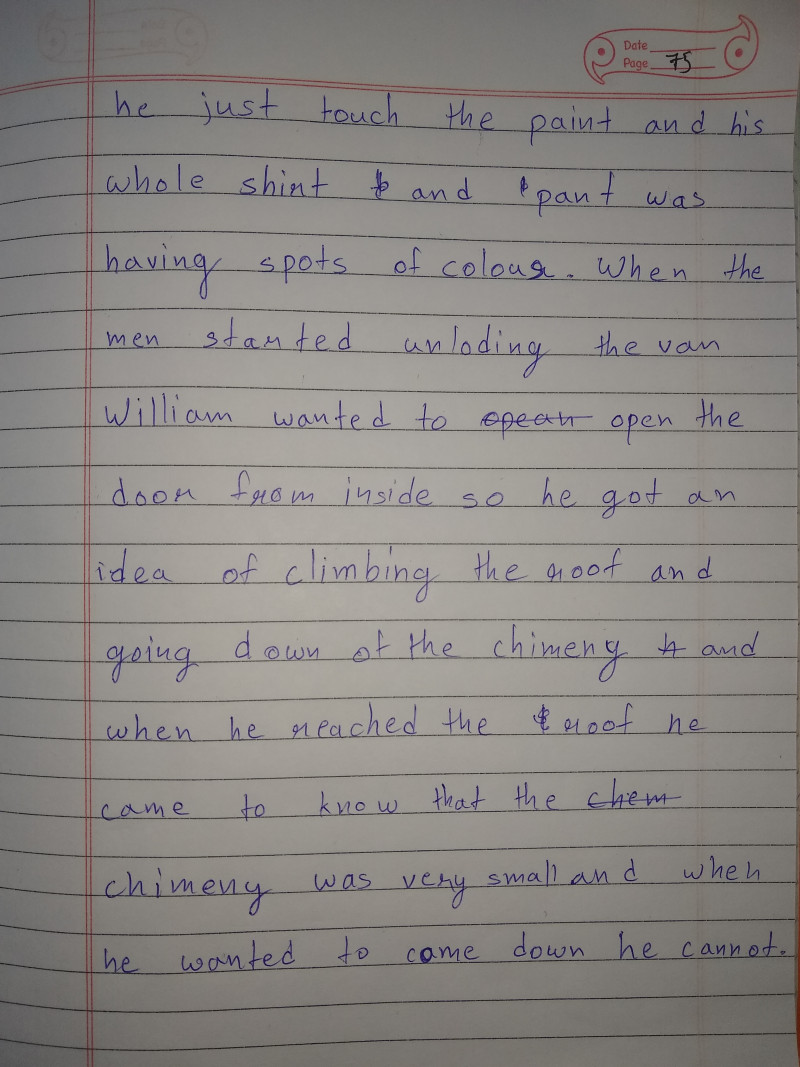 Date
Page 75
he just touch the paint and his
whole shirt and pant was
having spots of colour. When the
men started unloding the van
William wanted to opean open the
door from inside so he got an
idea of climbing the roof and
going down of the chimeny and
when he reached the roof he
came to know that the chem
chimeny was very small and when
he wanted to come down he cannot.